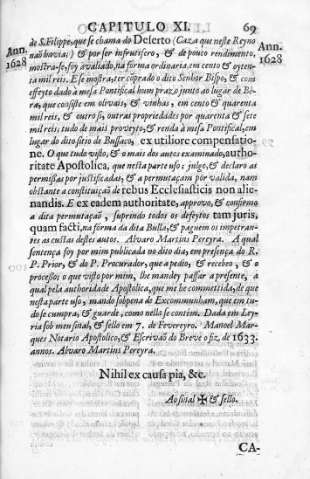 CAPITULO XI. 69
Ann. 1628
Ann. 1628
de S. Filippe, que se chama do Deserto (Caza que neste Reyno
naõ havia:) & por ser infrutifero, & de pouco rendimento,
mostra-se, foy avaliado, na forma ordinaria, em cento & oyten-
ta mil reis. E se mostra, ter copeado o dito Senhor Bispo, & com
effeyto dado à mesa Pontifical hum prazo junto ao lugar de Bi-
ra, que consiste em olivais, & vinhas, em cento & quarenta
mil reis, & outro si, outras propriedades por quarenta & sete
mil reis; tudo de mais proveyto, & renda à mesa Pontifical, em
lugar do dito sitio de Bussaco, ex utiliore compensatio-
ne. O que tudo visto, & o mais dos autos examinado, autho-
ritate Apostolica, que nesta parte uso: julgo, & declaro as
permissas por justificadas, & a permutaçam por valida, nam
obstante a constituiçaõ de rebus Ecclesiasticis non alie-
nandis. E ex eadem authoritate, approvo, & confirmo
a dita permutaçaõ, suprindo todos os defeytos tam juris,
quam facti, na forma da dita Bulla, & paguem os impetran-
tes as custas destes autos. Alvaro Martins Pereyra. A qual
sentença foy por mim publicada no dito dia, em presença do R.
P. Prior, & do P. Procurador, que a pedio, & recebeo, & o
processo; o que visto por mim, lhe mandey passar a presente, a
qual pela authoridade Apostolica, que me he commettida, & que
nesta parte uso, mando sobpena de Excommunham, que em tu-
do se cumpra, & guarde, como nella se contém. Dada em Ley-
ria sob meu sinal, & sello em 7. de Fevereyro. Manoel Mar-
ques Notario Apostolico, & Escrivaõ do Breve o fiz, de 1633.
annos. Alvaro Martins Pereyra.
Nihil ex causa pia, &c.
Ao sinal ✠ & sello.
CA-